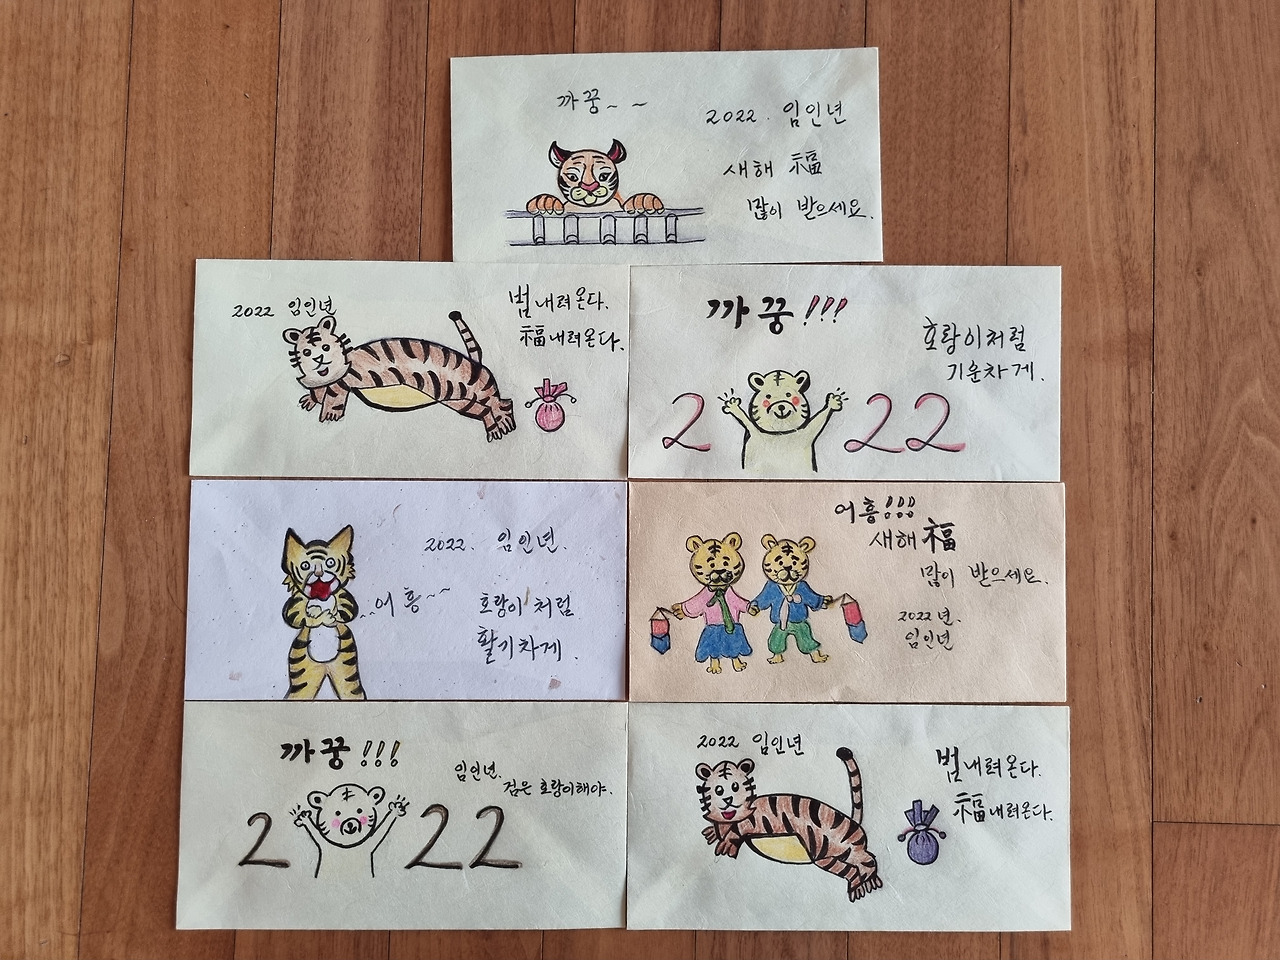 까꿍~~
2022. 임인년
새해 福
많이 받으세요.
2022 임인년
범 내려온다.
福 내려온다.
까꿍!!!
호랑이처럼
기운차게.
2 22
2022. 임인년.
어흥~~
호랑이처럼
활기차게.
어흥!!!
새해 福
많이 받으세요.
2022년.
임인년
까꿍!!!
임인년.
검은 호랑이해야.
2 22
2022 임인년
범 내려온다.
福 내려온다.